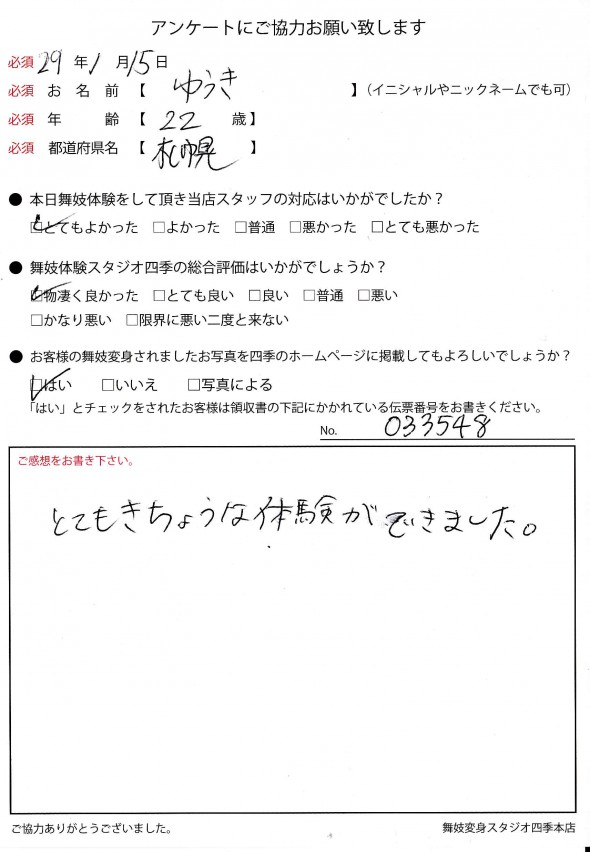 アンケートにご協力お願い致します
必須 29 年 1 月 15 日
必須 お名前 【 ゆうき 】（イニシャルやニックネームでも可）
必須 年齢 【 22 歳 】
必須 都道府県名 【 札幌 】
● 本日舞妓体験をして頂き当店スタッフの対応はいかがでしたか？
□とてもよかった □よかった □普通 □悪かった □とても悪かった
● 舞妓体験スタジオ四季の総合評価はいかがでしょうか？
□物凄く良かった □とても良い □良い □普通 □悪い
□かなり悪い □限界に悪い二度と来ない
● お客様の舞妓変身されましたお写真を四季のホームページに掲載してもよろしいでしょうか？
□はい □いいえ □写真による
「はい」とチェックをされたお客様は領収書の下記にかかれている伝票番号をお書きください。
No. 033548
ご感想をお書き下さい。
とてもきちょうな体験ができました。
ご協力ありがとうございました。 舞妓変身スタジオ四季本店